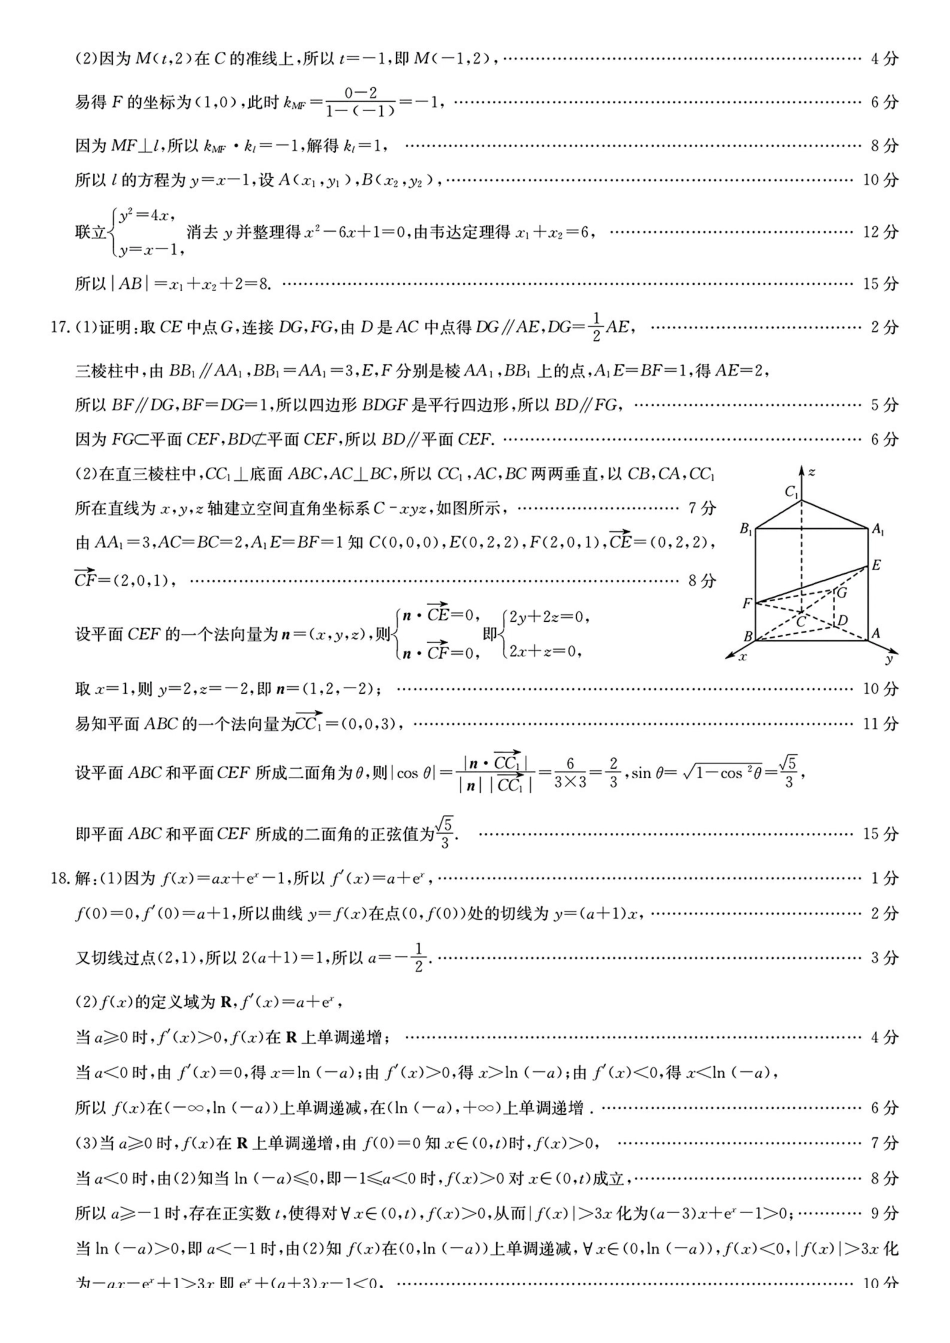 (2)因为 M(t,2)在 C 的准线上,所以 t=-1,即 M(-1,2),…… 4 分
易得 F 的坐标为(1,0),此时 k_MF = (0-2)/(1-(-1)) = -1,…… 6 分
因为 MF⊥l,所以 k_MF・k_l=-1,解得 k_l=1,…… 8 分
所以 l 的方程为 y=x-1,设 A(x₁,y₁),B(x₂,y₂),…… 10 分
联立{y²=4x, y=x-1, 消去 y 并整理得 x²-6x+1=0,由韦达定理得 x₁+x₂=6,…… 12 分
所以|AB|=x₁+x₂+2=8.…… 15 分
17.(1)证明:取 CE 中点 G,连接 DG,FG,由 D 是 AC 中点得 DG∥AE,DG=1/2AE,…… 2 分
三棱柱中,由 BB₁∥AA₁,BB₁=AA₁=3,E,F 分别是棱 AA₁,BB₁ 上的点,A₁E=BF=1,得 AE=2,
所以 BF∥DG,BF=DG=1,所以四边形 BDGF 是平行四边形,所以 BD∥FG,…… 5 分
因为 FG⊂平面 CEF,BD⊄平面 CEF,所以 BD∥平面 CEF.…… 6 分
(2)在直三棱柱中,CC₁⊥底面 ABC,AC⊥BC,所以 CC₁,AC,BC 两两垂直,以 CB,CA,CC₁
所在直线为 x,y,z 轴建立空间直角坐标系 C-xyz,如图所示,…… 7 分
由 AA₁=3,AC=BC=2,A₁E=BF=1 知 C(0,0,0),E(0,2,2),F(2,0,1),CE→=(0,2,2),
CF→=(2,0,1),…… 8 分
设平面 CEF 的一个法向量为 n=(x,y,z),则{n・CE→=0, n・CF→=0, 即{2y+2z=0, 2x+z=0,
取 x=1,则 y=2,z=-2,即 n=(1,2,-2);…… 10 分
易知平面 ABC 的一个法向量为CC₁→=(0,0,3),…… 11 分
设平面 ABC 和平面 CEF 所成二面角为θ,则|cos θ|=|n・CC₁→|/(|n||CC₁→|)=6/(3×3)=2/3,sin θ=√(1-cos²θ)=√5/3,
即平面 ABC 和平面 CEF 所成的二面角的正弦值为√5/3.…… 15 分
z
C₁
B₁
A₁
E
G
F
C
D
B
A
x
y
18.解:(1)因为 f(x)=ax+eˣ-1,所以 f′(x)=a+eˣ,…… 1 分
f(0)=0,f′(0)=a+1,所以曲线 y=f(x)在点(0,f(0))处的切线为 y=(a+1)x,…… 2 分
又切线过点(2,1),所以 2(a+1)=1,所以 a=-1/2.…… 3 分
(2)f(x)的定义域为 R,f′(x)=a+eˣ,
当 a≥0 时,f′(x)>0,f(x)在 R 上单调递增;…… 4 分
当 a<0 时,由 f′(x)=0,得 x=ln (-a);由 f′(x)>0,得 x>ln (-a);由 f′(x)<0,得 x<ln (-a),
所以 f(x)在(-∞,ln (-a))上单调递减,在(ln (-a),+∞)上单调递增.…… 6 分
(3)当 a≥0 时,f(x)在 R 上单调递增,由 f(0)=0 知 x∈(0,t)时,f(x)>0,…… 7 分
当 a<0 时,由(2)知当 ln (-a)≤0,即-1≤a<0 时,f(x)>0 对 x∈(0,t)成立,…… 8 分
所以 a≥-1 时,存在正实数 t,使得对∀x∈(0,t),f(x)>0,从而|f(x)|>3x 化为(a-3)x+eˣ-1>0;…… 9 分
当 ln (-a)>0,即 a<-1 时,由(2)知 f(x)在(0,ln (-a))上单调递减,∀x∈(0,ln (-a)),f(x)<0,|f(x)|>3x 化
为-ax-eˣ+1>3x 即 eˣ+(a+3)x-1<0,…… 10 分